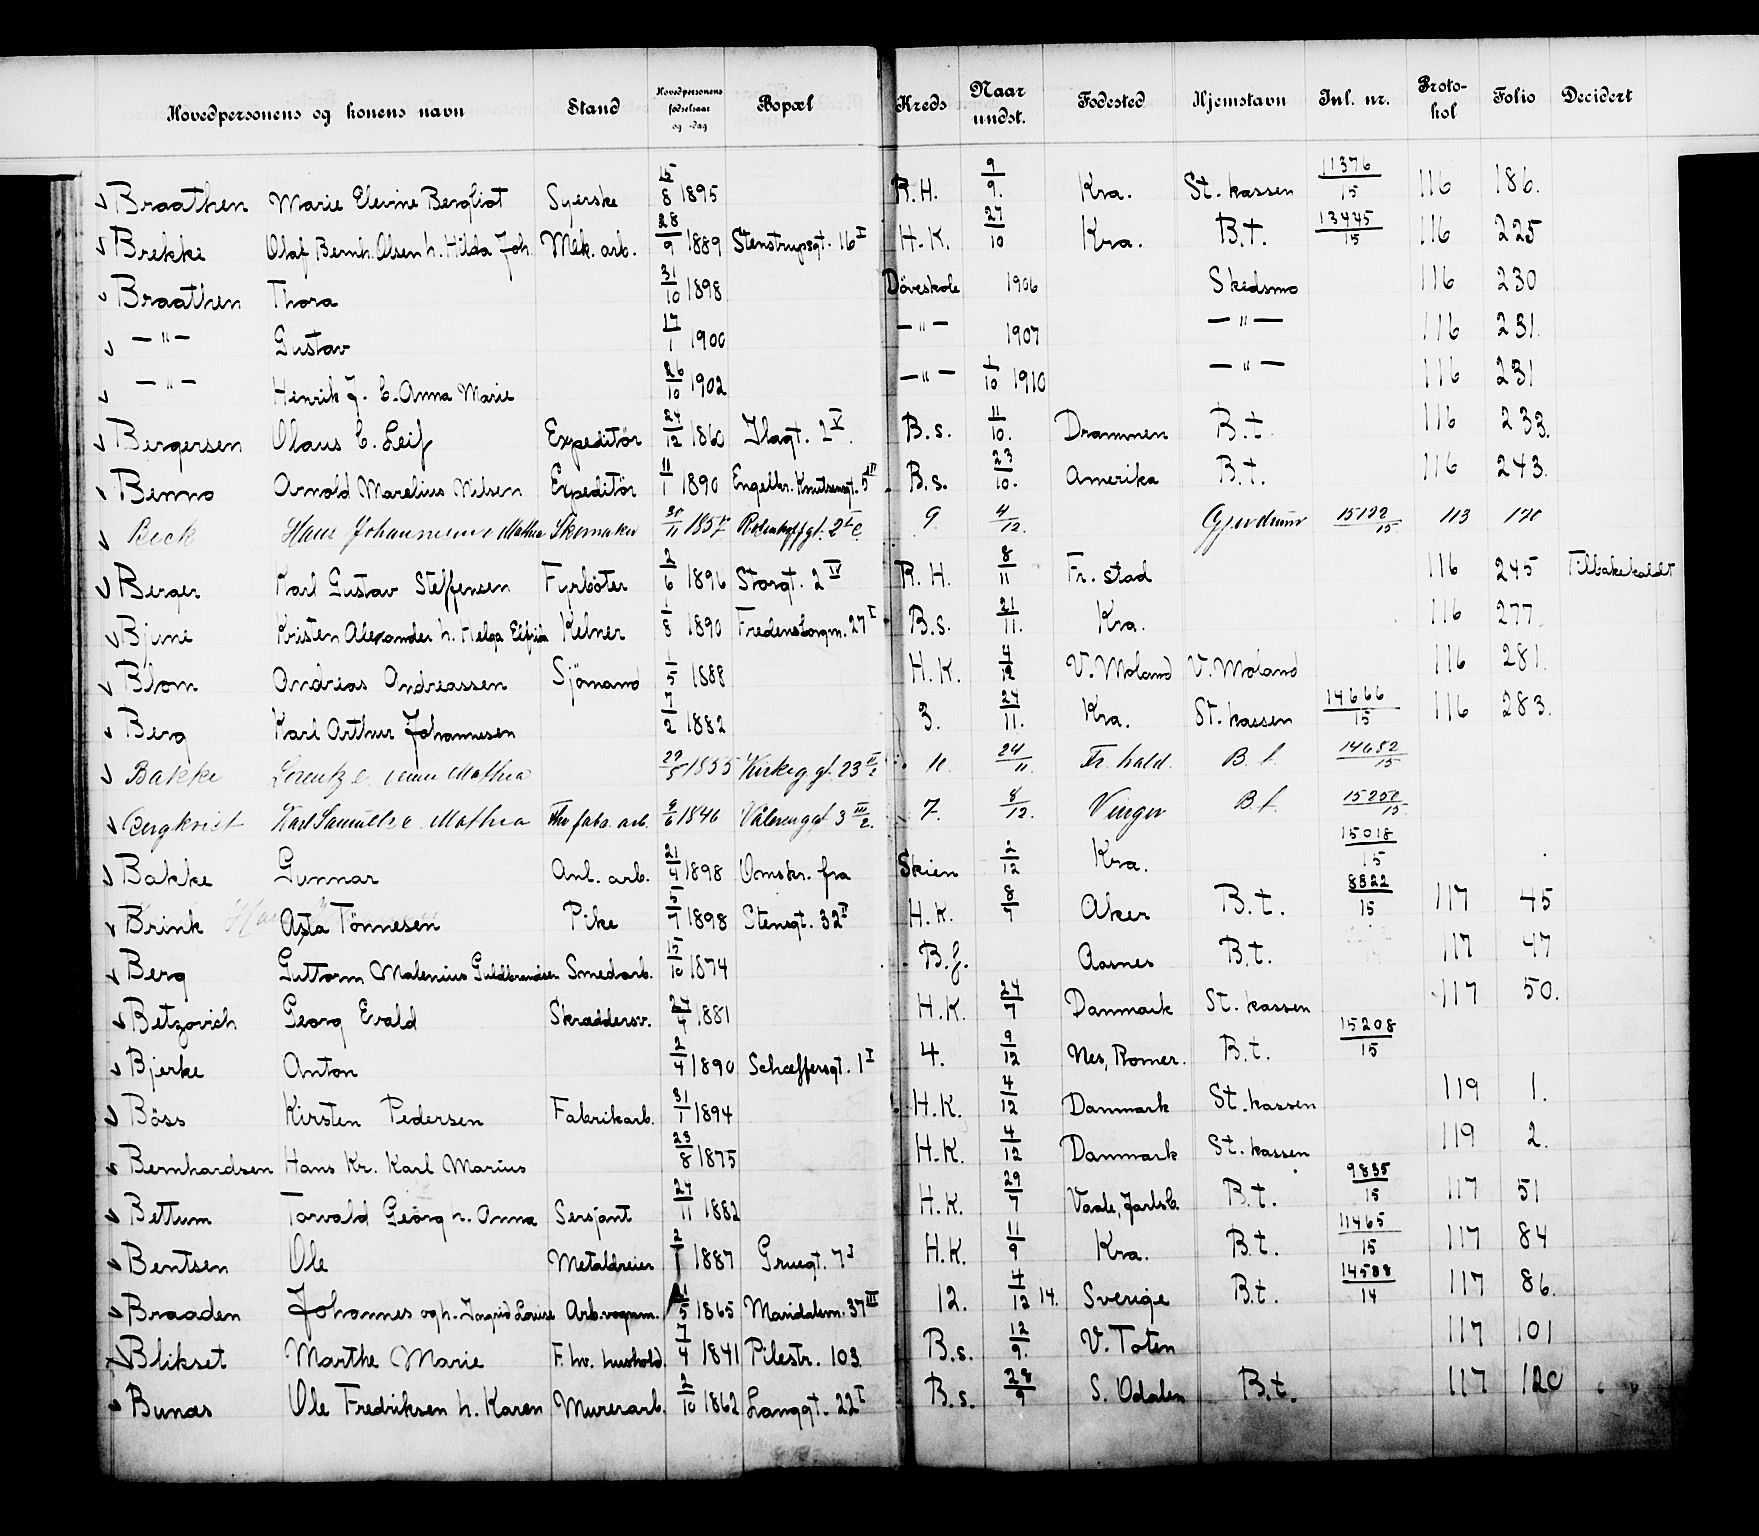 Hovedpersonens og konens navn Stand Hovedpersonens fødselsaar og -dag Bopæl Kreds Naar undst. Fødested Hjemstavn Inl. nr. Protokol Folio Decidert
Braathen Marie Elevine Bergliot Syerske 15/8 1895 R.H. 9/9. Kra. St. kassen 11376/15 116 186.
Brekke Olaf Bernh. Olsen h. Hilda Joh. Mek. arb. 28/9 1889 Stenstrupsgt. 16 I H.K. 27/10 Kra. B.t. 13445/15 116 225
Braathen Thora 31/10 1898 Døveskole 1906 Skedsmo 116 230
— " — Gustav 17/1 1900 — " — 1907 — " — 116 231.
— " — Henrik J. E. Anna Marie 26/10 1902 — " — 1/10 1910 — " — 116 231
Bergersen Olaus E. Leif Expeditör 24/12 1860 Ilagt. 2 V. B.s. 11/10. Drammen B.t. 116 233.
Benno Arnold Marelius Nilsen Expeditör 11/1 1890 Engelbr. Knutsensgt. 5 III B.s. 23/10. Amerika B.t. 116 243.
Beck Hans Johannesen o Mathea Skomaker 30/11 1857 2 9 4/12. Gjerdrum 15122/15 113 170
Berger Karl Gustav Steffensen Fyrböter 2/6 1896 Storgt. 2 IV R.H. 8/11 Fr. stad 116 245 Tilbakekaldt
Bjune Kristen Alexander h. Helga Elfrida Kelner 1/8 1890 Fredensborgm. 27 I B.s. 21/11. Kra. 116 277
Blom Andreas Andreassen Sjömand 1/5 1888 H.K. 4/12 V. Moland V. Moland 116 281.
Berg Karl Arthur Johannesen 7/2 1882 3. 27/11. Kra. St. kassen 14666/15 116 283.
Bakke Lorentz e Mathea 29/5 1855 Kirkeg gt. 23 II/2 11. 24/11. Fr. hald. B.t. 14652/15
Bergkvist Karl Samuelse Mathea Thv fabr. arb. 9/6 1846 Vålereng gt 3 III/2. 7. 8/12. Vinger B.t. 15250/15.
Bakke Gunnar Anl. arb. 21/4 1898 Omskr. fra Skien 2/12 Kra. 15018/15
Brink Asta Tönnesen Pike 5/7 1898 Stensgt. 32 II H.K. 8/7 Aker B.t. 8822/15 117 45
Berg Guttorm Malenius Guldbrandsen Smedarb. 15/10 1874 B.f. Aasnes B.t. 117 47
Betzovich Georg Evald Skreddersv. 24/4 1881 H.K. 24/7 Danmark St. kassen 117 50.
Bjerke Anton 2/4 1890 Schæffersgt. 1 I 4. 9/12 Nes, Romer. B.t. 15208/15
Böss Kirsten Pedersen Fabrikarb. 31/1 1894 H.K. 4/12 Danmark St. kassen 119 1.
Bernhardsen Hans Kr. Karl Marius 23/8 1875 H.K. 4/12 Danmark St. kassen 119 2.
Bettum Torvald Georg h. Anna Sersjant 27/11 1882 H.K. 29/7 Vaale, Jarlsb. B.t. 9835/15 117 51
Bentsen Ole Metaldreier 2/1 1887 Gruegt. 7 I H.K. 11/9 Kra. B.t. 11465/15 117 84
Braaden Johannes og h. Ingrid Louise Arb. vognm. 21/5 1865 Maridalsv. 37 III 12. 4/12 14. Sverige B.t. 14588/14 117 86.
Blikset Marthe Marie F. hv. hushold. 7/4 1841 Pilestr. 103 B.s. 12/9. V. Toten 117 101
Bunæs Ole Fredriksen h. Karen Murerarb. 2/10 1862 Langgt. 22 I B.s. 28/9 S. Odalen B.t. 117 120